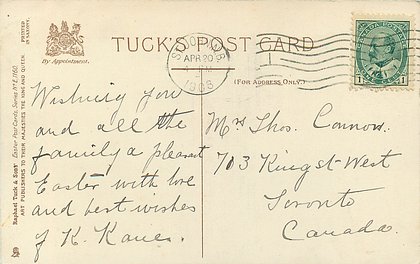 TUCK'S POST CARD
By Appointment.
(FOR ADDRESS ONLY.)
APR 20
CANADA POSTAGE
1 1
PRINTED IN SAXONY.
Raphael Tuck & Sons'
ART PUBLISHERS TO THEIR MAJESTIES THE KING AND QUEEN
Wishing you
and all the
family a pleasant
Easter with love
and best wishes
of K. Kane.
Mrs Thos. Connor.
703 King St-West
Toronto
Canada.